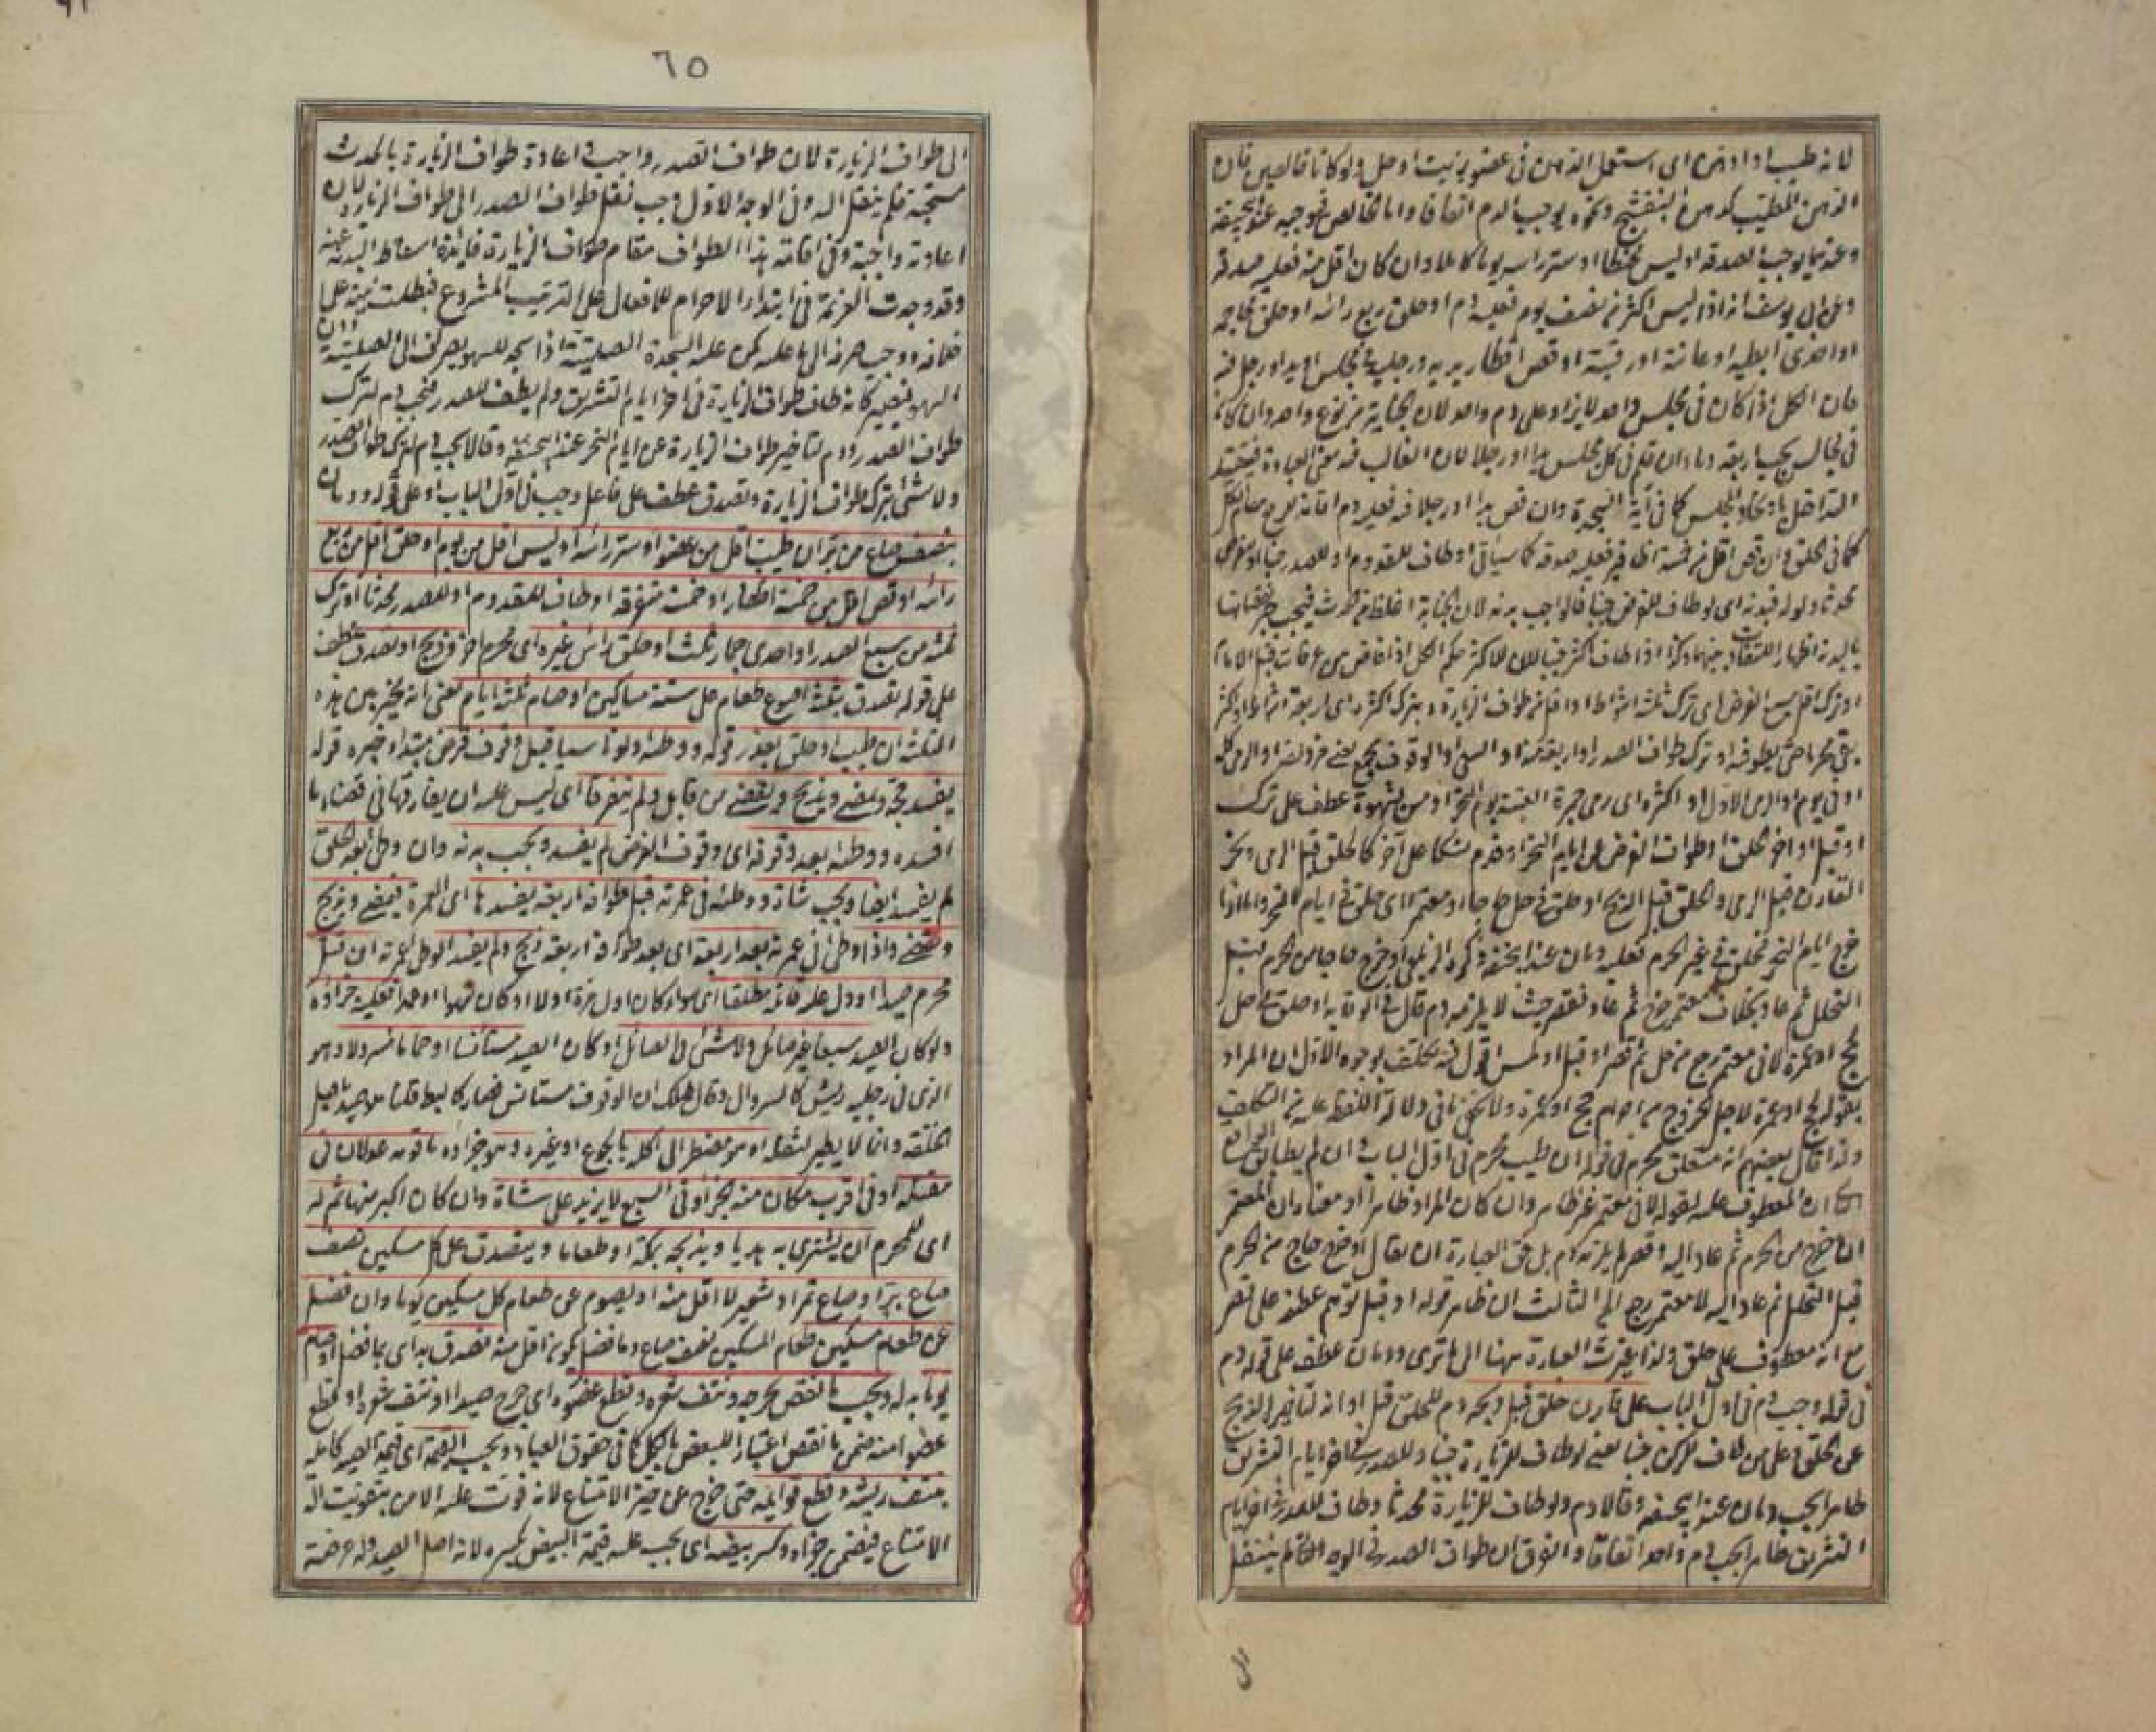 لانه طيب او ادهن اى استعمل الدهن فى عضو بزيت او حل ولو كانا خالصين فان
الدهن المطيب كدهن البنفسج ونحوه يوجب الدم اتفاقا واما الخالص فيوجبه عند ابى حنيفة
وعندهما يوجب الصدقة او لبس مخيطا او ستر راسه يوما كاملا وان كان اقل منه فعليه صدقة
وعن ابى يوسف انه اذا لبس اكثر من نصف يوم فعليه دم او حلق ربع راسه او حلق محاجمه
او احدى ابطيه او عانته او رقبته او قص اظفار يديه ورجليه فى مجلس او يد او رجل فيه
فان الكل اذا كان فى مجلس واحد لا يزاد على دم واحد لان الجناية من نوع واحد وان كانا
فى مجالس يجب اربعة دماء ان قلم فى كل مجلس يدا او رجلا لان الغالب فيه معنى العبادة فيتقيد
التداخل باتحاد المجلس كما فى آية السجدة وان قص يدا او رجلا فيه فعليه دم اقامة للربع مقام الكل
كما فى الحلق وان قص اقل من خمسة اظافير فعليه صدقة كما سياتى او طاف للقدوم او للصدر جنبا او للفرض
محدثا ولو له فبدنة اى لو طاف للفرض جنبا فالواجب بدنة لان الجناية اغلظ من الحدث فيجب جبر نقصانها
بالبدنة اظهارا للتفاوت بينهما وكذا اذا طاف اكثره جنبا لان للاكثر حكم الكل او افاض من عرفات قبل الامام
او ترك اقل سبع الفرض اى ترك ثلثة اشواط او اقل من طواف الزيارة وبترك اكثره اى اربعة اشواط او اكثر
بقى محرما حتى يطوفه او ترك طواف الصدر او اربعة منه او السعى او الوقوف بجمع يعنى مزدلفة او الرمى كله
او فى يوم او الرمى الاول او اكثره اى رمى جمرة العقبة يوم النحر او مس بشهوة عطف على ترك
او قبل او اخر الحلق او طواف الفرض عن ايام النحر او قدم نسكا على آخر كالحلق قبل الرمى ونحر
القارن قبل الرمى والحلق قبل الذبح او حلق فى حل حاجا او معتمرا اى حلق فى ايام النحر واما اذا
خرج ايام النحر فحلق فى غير الحرم فعليه دمان عند ابى حنيفة ذكره الزيلعى او خرج حاجا من الحرم قبل
التحلل ثم عاد بخلاف معتمر خرج ثم عاد فقصر حيث لا يلزمه دم قال فى الوقاية او حلق فى حل
بحج او عمرة لا فى معتمر رجع من حل ثم قصر او قبل او لمس اقول فيه تكلف بوجوه الاول ان المراد
بقوله بحج او عمرة لاجل الخروج من احرام حج او عمرة ولا يخفى ما فى دلالة اللفظ عليه من التكلف
ولذا قال بعضهم انه متعلق بمحرم فى قوله ان طيب محرم فى اول الباب وان لم يطابق الواقع
الثانى ان المعطوف عليه لقوله لا فى معتمر غير ظاهر وان كان المراد ظاهرا او معناه ان المعتمر
ان خرج من الحرم ثم عاد اليه وقصر لم يلزمه دم بل حق العبارة ان يقال او خرج حاج من الحرم
قبل التحلل ثم عاد اليه لا معتمر رجع الخ الثالث ان ظاهر قوله او قبل توهم عطفه على قصر
مع انه معطوف على حلق ولذا غيرت العبارة ههنا الى ما ترى ودمان عطف على قوله دم
فى قوله وجب دم فى اول الباب على قارن حلق قبل ذبحه دم للحلق قبل اوانه لتأخير الذبح
عن الحلق وعلى من طاف للركن جنبا يعنى لو طاف للزيارة جنبا وللصدر فى اخر ايام التشريق
طاهرا يجب دمان عند ابى حنيفة وقالا دم ولو طاف للزيارة محدثا وطاف للصدر فى اخر ايام
التشريق طاهرا يجب دم واحد اتفاقا والفرق ان طواف الصدر فى الوجه الثانى لم ينتقل
الى
٦٥
الى طواف الزيارة لان طواف الصدر واجب واعادة طواف الزيارة بالحدث
مستحبة فلم ينتقل اليه وفى الوجه الاول وجب نقل طواف الصدر الى طواف الزيارة لان
اعادته واجبة وفى اقامة هذا الطواف مقام طواف الزيارة فائدة اسقاط البدنة عنه
وقد وجدت العزيمة فى ابتداء الاحرام للافعال على الترتيب المشروع فبطلت نيته على
خلافه ووجب صرفه الى ما عليه كمن عليه السجدة الصلبية اذا سجد للسهو يصرف الى الصلبية دون
السهو فيصير كانه طاف طواف الزيارة فى اخر ايام التشريق ولم يطف للصدر فيجب دم لترك
طواف الصدر ودم لتأخير طواف الزيارة عن ايام النحر عند ابى حنيفة وقالا يجب دم لترك طواف الصدر
ولا شئ بترك طواف الزيارة وتصدق عطف على فاعل وجب فى اول الباب او على قوله ودمان
بنصف صاع من بر ان طيب اقل من عضو او ستر راسه او لبس اقل من يوم او حلق اقل من ربع
راسه او قص اقل من خمسة اظفار او خمسة متفرقة او طاف للقدوم او للصدر محدثا او ترك
ثلثة من سبع الصدر او احدى جمار ثلث او حلق راس غيره اى محرم اخر وذبح او تصدق عطف
على قوله تصدق بثلثة اصوع طعام على ستة مساكين او صام ثلثة ايام يعنى انه يخير بين هذه
الثلثة ان طيب او حلق بعذر قوله ووطئه ولو ناسيا قبل وقوف فرض مبتدأ وخبره قوله
يفسد حجه ويمضى ويذبح ويقضى من قابل ولم يتفرقا اى ليس عليه ان يفارقها فى قضاء ما
افسده ووطئه بعد وقوفه اى وقوف الفرض لم يفسد ويجب بدنة وان وطئ بعد الحلق
لم يفسد ايضا ويجب شاة ووطئه فى عمرته قبل طوافه اربعة يفسدها اى العمرة فيمضى ويذبح
ويقضى واذا وطئ فى عمرته بعد اربعة اى بعد طوافه اربعة ذبح ولم يفسد الوطئ عمرته ان قتل
محرم صيدا او دل عليه قاتله مطلقا اى سواء كان اول مرة او لا او كان سهوا او عمدا فعليه جزاؤه
ولو كان الصيد سبعا غير صائل ولا شئ فى الصائل او كان الصيد مستأنسا او حماما مسرولا وهو
الذى فى رجليه ريش كالسروال وقال مالك ان الوقوف مستانس فصار كالبط قلنا هو صيد باصل
الخلقة وانما لا يطير لثقله او هو مضطر الى اكله بالجوع او غيره وهو جزاؤه ما قومه عدلان فى
مقتله او فى اقرب مكان منه لكن فى السبع لا يزيد على شاة وان كان اكبر منها ثم له
اى للمحرم ان يشترى به هديا ويذبحه بمكة او طعاما ويتصدق على كل مسكين نصف
صاع بر او صاع تمر او شعير لا اقل منه او يصوم عن طعام كل مسكين يوما وان فضل
عن طعام مسكين طعام المسكين نصف صاع وما فضل يكون اقل منه تصدق به اى بما فضل او صام
يوما بدله ويجب ما نقص بجرحه ونتف شعره وقطع عضوه اى جرح صيدا او نتف شعره او قطع
عضوا منه ضمن ما نقص اعتبارا للبعض بالكل كما فى حقوق العباد ويجب القيمة اى قيمة الصيد كاملة
بنتف ريشه وقطع قوائمه حتى خرج عن حيز الامتناع لانه فوت عليه الامن بتفويت آلة
الامتناع فيضمن جزاءه وكسر بيضه اى يجب عليه قيمة البيض بكسره لانه اصل الصيد وله عرضية